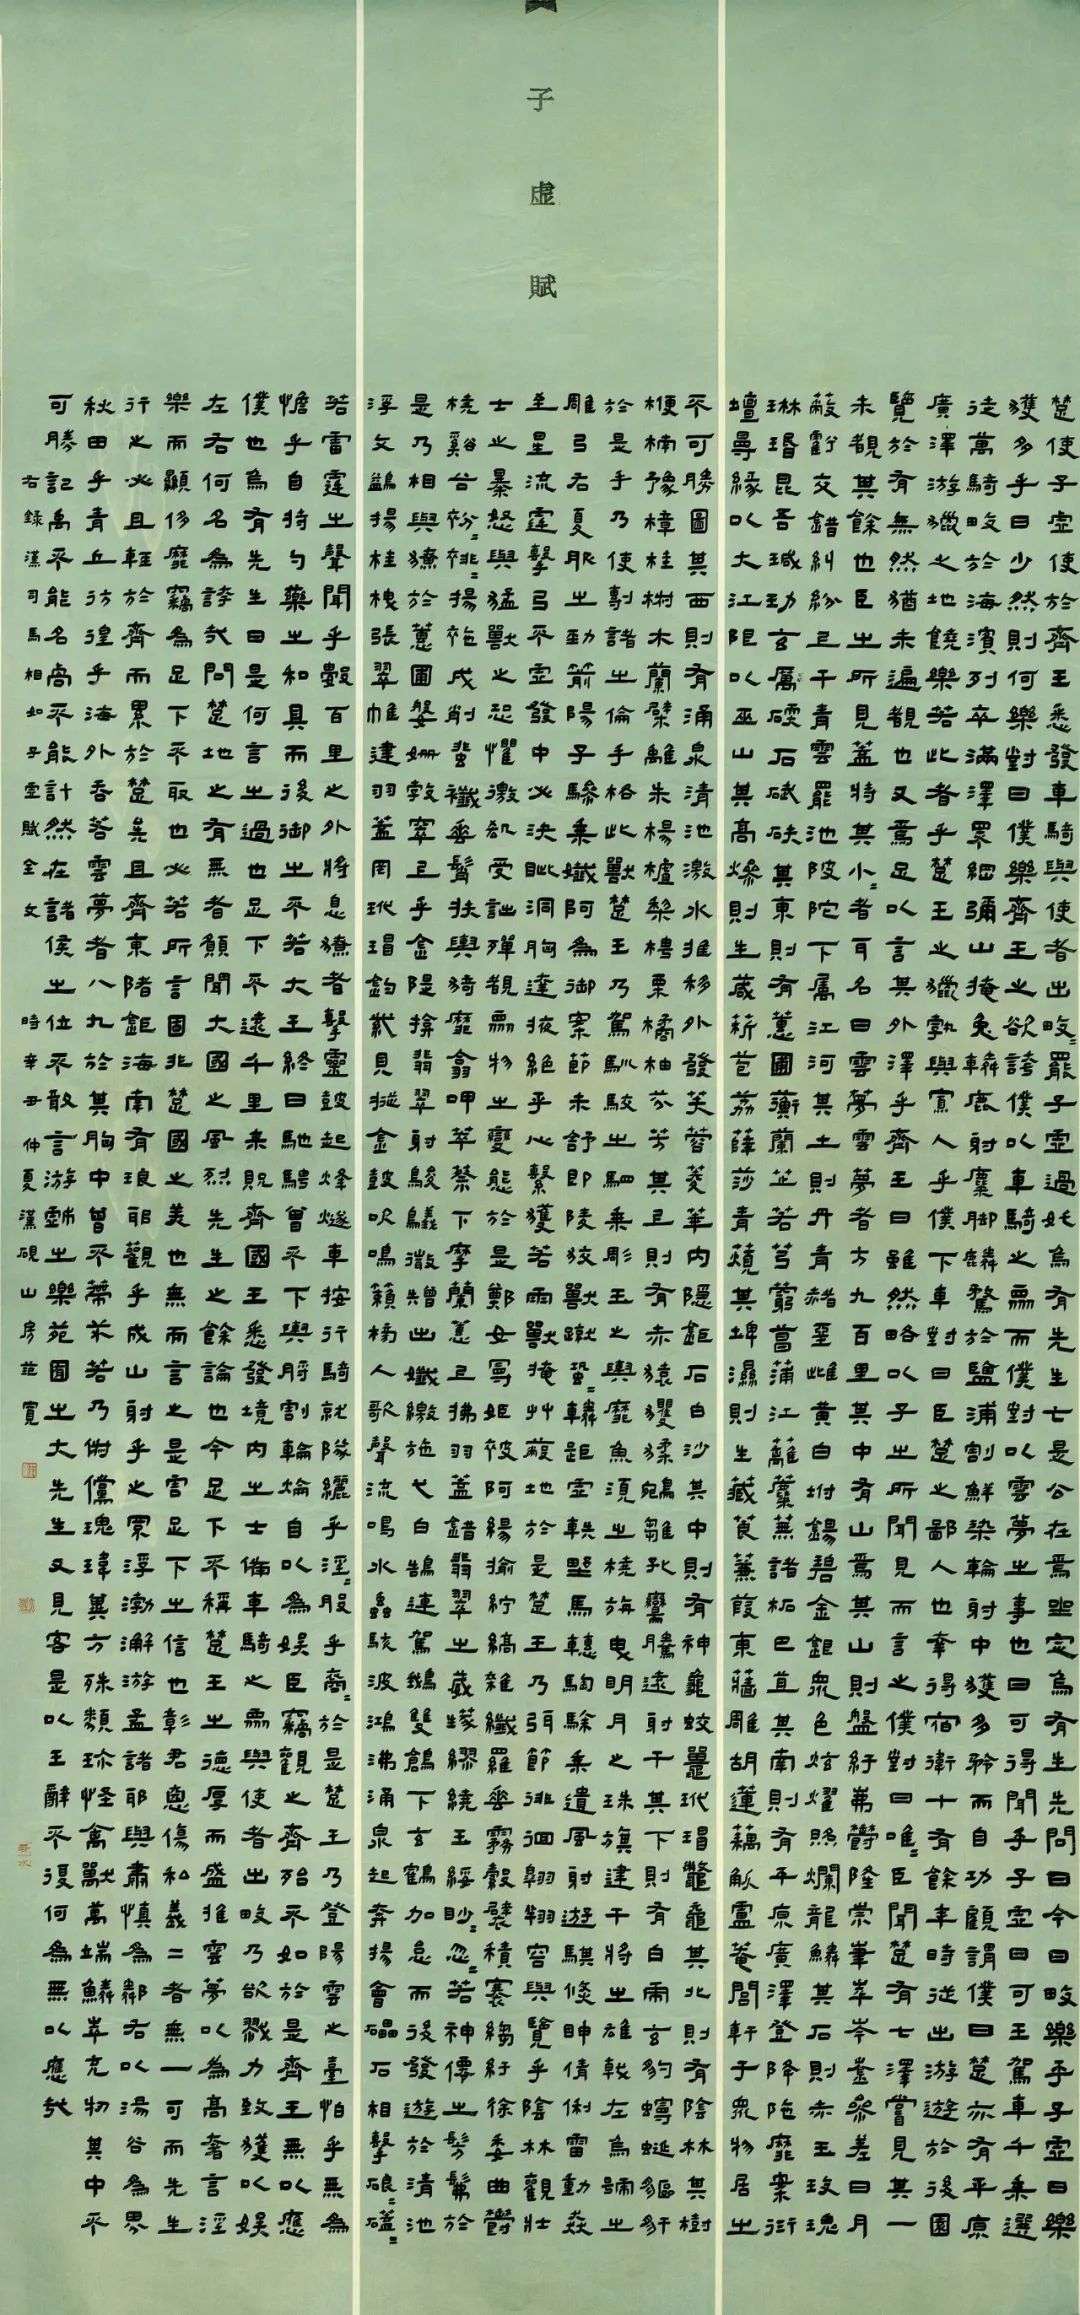 子虛賦
楚使子虛使於齊王悉發車騎與使者出畋=罷子虛過奼烏有先生亡是公在焉坐定烏有生先問曰今日畋樂乎子虛曰樂
獲多乎曰少然則何樂對曰僕樂齊王之欲誇僕以車騎之眾而僕對以雲夢之事也曰可得聞乎子虛曰可王駕車千乘選
徒萬騎畋於海濱列卒滿澤罘網彌山掩兔轔鹿射麋腳麟騖於鹽浦割鮮染輪射中獲多矜而自功顧謂僕曰楚亦有平原
廣澤游獵之地饒樂若此者乎楚王之獵孰與寡人乎僕下車對曰臣楚之鄙人也幸得宿衛十有餘年時從出游遊於後園
覽於有無然猶未遍覩也又焉足以言其外澤乎齊王曰雖然略以子之所聞見而言之僕對曰唯=臣聞楚有七澤嘗見其一
未覩其餘也臣之所見蓋將其小=者耳名曰雲夢雲夢者方九百里其中有山焉其山則盤紆岪鬱隆崇崒岑崟參差日月
蔽虧交錯糾紛上干青雲罷池陂陀下屬江河其土則丹青赭堊雌黃白坿錫碧金銀眾色炫燿照爛龍鱗其石則赤玉玫瑰
琳瑉昆吾瑊玏玄厲碝石碔砆其東則有蕙圃衡蘭芷若芎藭菖蒲江蘺蘪蕪諸柘巴苴其南則有平原廣澤登降陁靡案衍
壇曼緣以大江限以巫山其高燥則生葴菥苞荔薛莎青薠其埤濕則生藏莨蒹葭東蘠雕胡蓮藕觚盧菴閭軒于眾物居之
不可勝圖其西則有涌泉清池激水推移外發芙蓉菱華內隱鉅石白沙其中則有神龜蛟鼉玳瑁鼈黿其北則有陰林其樹
楩楠豫樟桂樹木蘭檗離朱楊樝梨梬栗橘柚芬芳其上則有赤猿玃猱鵷雛孔鸞騰遠射干其下則有白虎玄豹蟃蜒貙豻
於是乎乃使剸諸之倫手格此獸楚王乃駕馴駮之駟乘彫玉之輿靡魚須之橈旃曳明月之珠旗建干將之雄戟左烏號之
雕弓右夏服之勁箭陽子驂乘孅阿為御案節未舒即陵狡獸蹴蛩=轔距虛軼野馬轊騊駼乘遺風射遊騏倏眒倩浰雷動猋
至星流霆擊弓不虛發中必決眦洞胸達掖絕乎心繫獲若雨獸掩艸蔽地於是楚王乃弭節徘徊翱翔容與覽乎陰林觀壯
士之暴怒與猛獸之恐懼徼郄受詘殫覩眾物之變態於是鄭女曼姬被阿緆揄紵縞雜纖羅垂霧縠襞積褰縐紆徐委曲鬱
橈谿谷衯=裶=揚袘戌削蜚襳垂髾扶輿猗靡翕呷萃蔡下摩蘭蕙上拂羽蓋錯翡翠之葳蕤繆繞玉綏眇=忽=若神僊之髣髴於
是乃相與獠於蕙圃媻姍勃窣上乎金隄揜翡翠射鵔鸃微矰出孅繳施弋白鵠連駕鵝雙鶬下玄鶴加怠而後發遊於清池
浮文鷁揚桂枻張翠帷建羽蓋罔玳瑁鈎紫貝摐金鼓吹鳴籟榜人歌聲流喝水蟲駭波鴻沸涌泉起奔揚會礧石相擊硠=磕=
若雷霆之聲聞乎數百里之外將息獠者擊靈鼓起烽燧車按行騎就隊纚乎淫=般乎裔=於是楚王乃登陽雲之臺怕乎無為
憺乎自持勺藥之和具而後御之不若大王終日馳騁曾不下輿脟割輪焠自以為娛臣竊觀之齊殆不如於是齊王無以應
僕也烏有先生曰是何言之過也足下不遠千里來貺齊國王悉發境內之士備車騎之眾與使者出畋乃欲戮力致獲以娛
左右何名為誇哉問楚地之有無者願聞大國之風烈先生之餘論也今足下不稱楚王之德厚而盛推雲夢以為高奢言淫
樂而顯侈靡竊為足下不取也必若所言固非楚國之美也無而言之是害足下之信也彰君惡傷私義二者無一可而先生
行之必且輕於齊而累於楚矣且齊東陼鉅海南有琅邪觀乎成山射乎之罘浮渤澥游孟諸邪與肅慎為鄰右以湯谷為界
秋田乎青丘彷徨乎海外吞若雲夢者八九於其胸中曾不蒂芥若乃俶儻瑰瑋異方殊類珍怪鳥獸萬端鱗崒充物其中不
可勝記禹不能名卨不能計然在諸侯之位不敢言游戲之樂苑囿之大先生又見客是以王辭不復何為無以應哉
右錄漢司馬相如子虛賦全文時辛丑仲夏漢硯山房范寬